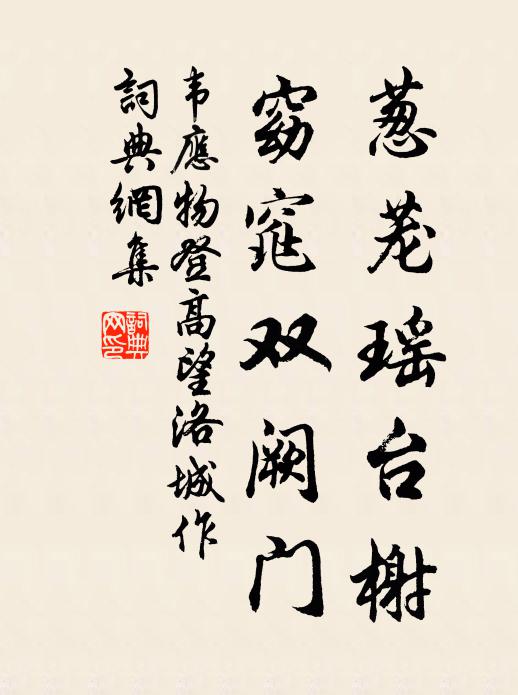 葱茏瑶台榭
窈窕双阙门
韦應物登高望洛城作
詞典網集
詞典
网印